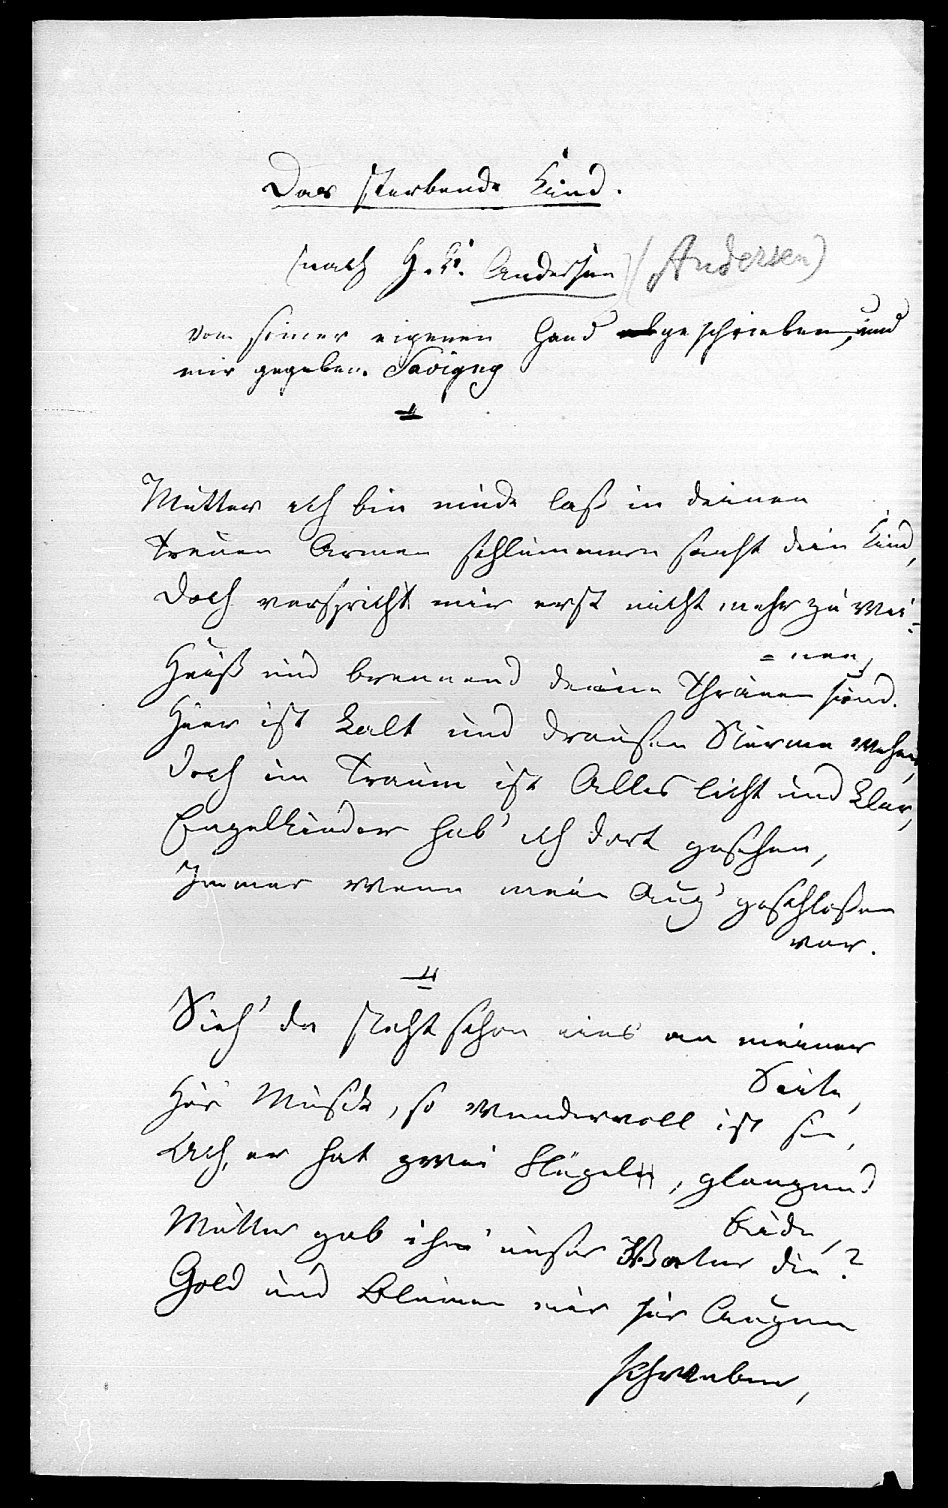 Das sterbende Kind.
(nach H. C. Andersen) (Andersen)
von seiner eigenen Hand abgeschrieben, und
mir gegeben. Savigny
Mutter ich bin müde laß in deinen
Treuen Armen schlummern sacht dein Kind,
Doch versprich mir erst nicht mehr zu wei-
=nen,
Heiß und brennend deine Thränen sind.
Hier ist kalt und draußen Stürme wehen,
Doch im Traum ist Alles licht und klar,
Engelkinder hab' ich dort gesehen,
Immer wenn mein Aug' geschloßen
war.
Sieh' da steht schon eins an meiner
Seite,
Hör' Musik, so wundervoll ist sie,
Ach, er hat zwei Flügel, glänzend
beide,
Mutter gab ihm unser Vater die?
Gold und Blumen mir für Augen
schweben,